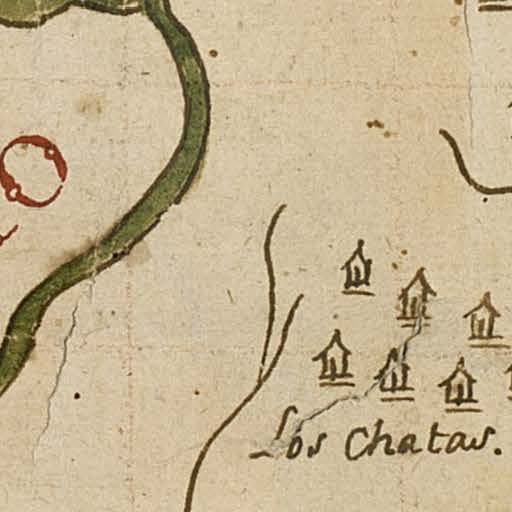 Los Chatas.